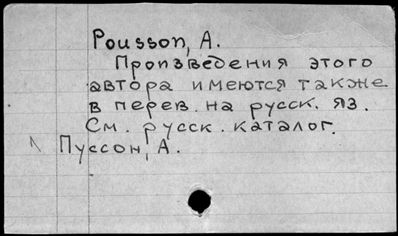 Pousson, A.
Произведения этого
автора имеются также
в перев. на русск. яз.
См. русск. каталог.
Пуссон, А.